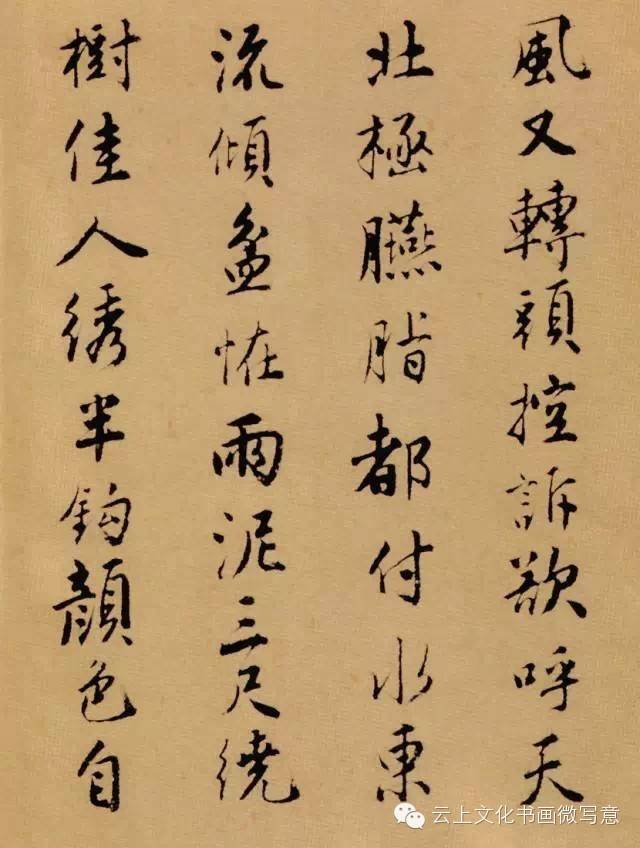 風又轉頭控訴欲呼天
北極臙脂都付水東
流傾盆恠雨泥三尺繞
樹佳人綉半鈎顏色自
云上文化书画微写意